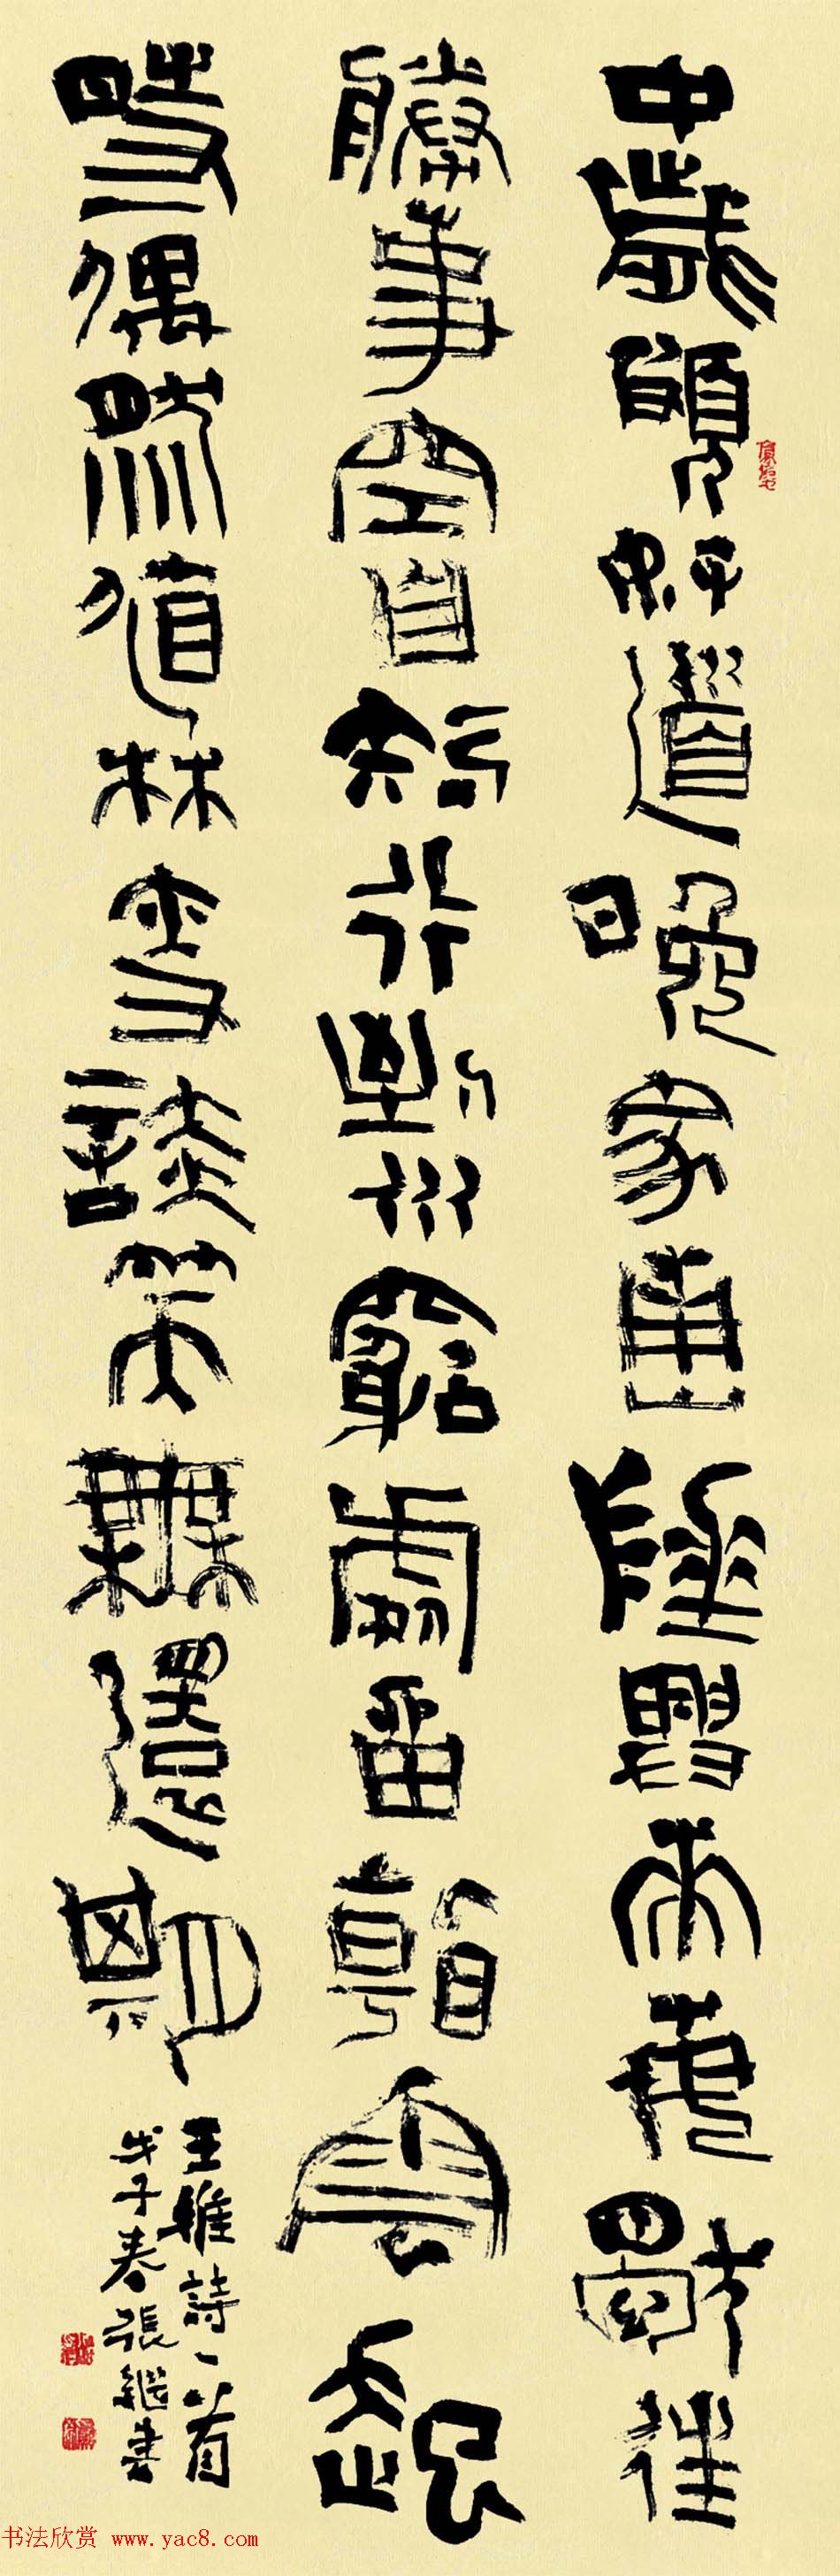 中歲頗好道晚家南山陲興來每獨往
勝事空自知行到水窮處坐看雲起
時偶然值林叟談笑無還期
王維詩一首
戊子春張繼書
书法欣赏 www.yac8.com